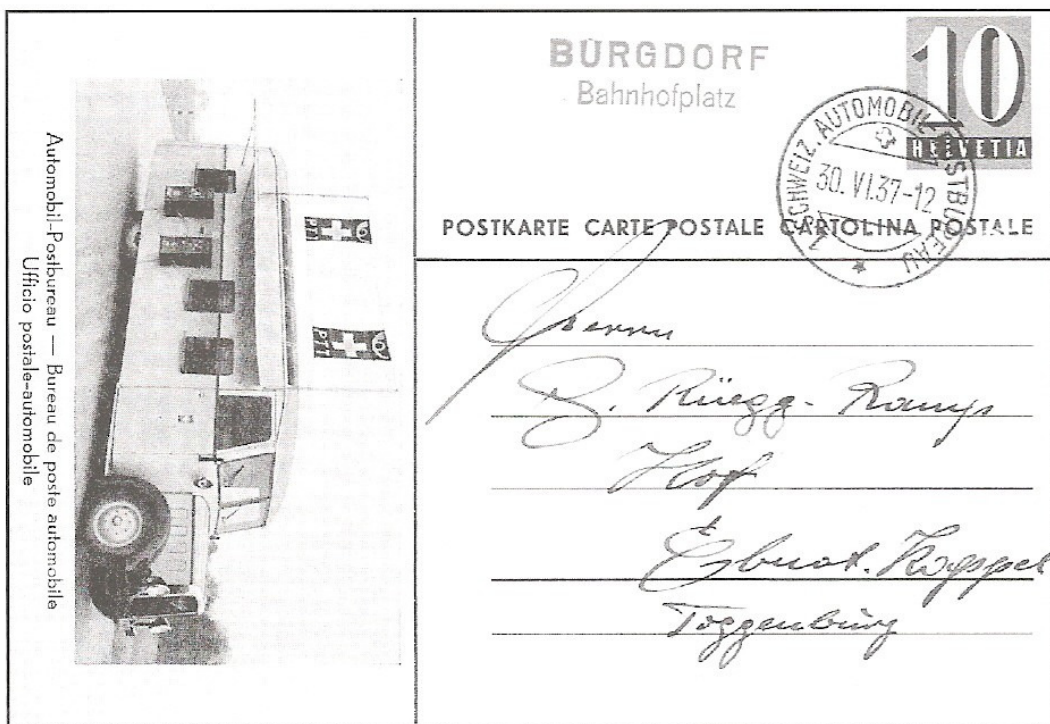 Automobil-Postbureau — Bureau de poste automobile
Ufficio postale-automobile
PTT
BURGDORF
Bahnhofplatz
10
HELVETIA
SCHWEIZ. AUTOMOBIL-POSTBUREAU
30. VI.37-12
POSTKARTE CARTE POSTALE CARTOLINA POSTALE
Herrn
Rüegg-
Hof
Ebnat-Kappel
Toggenburg